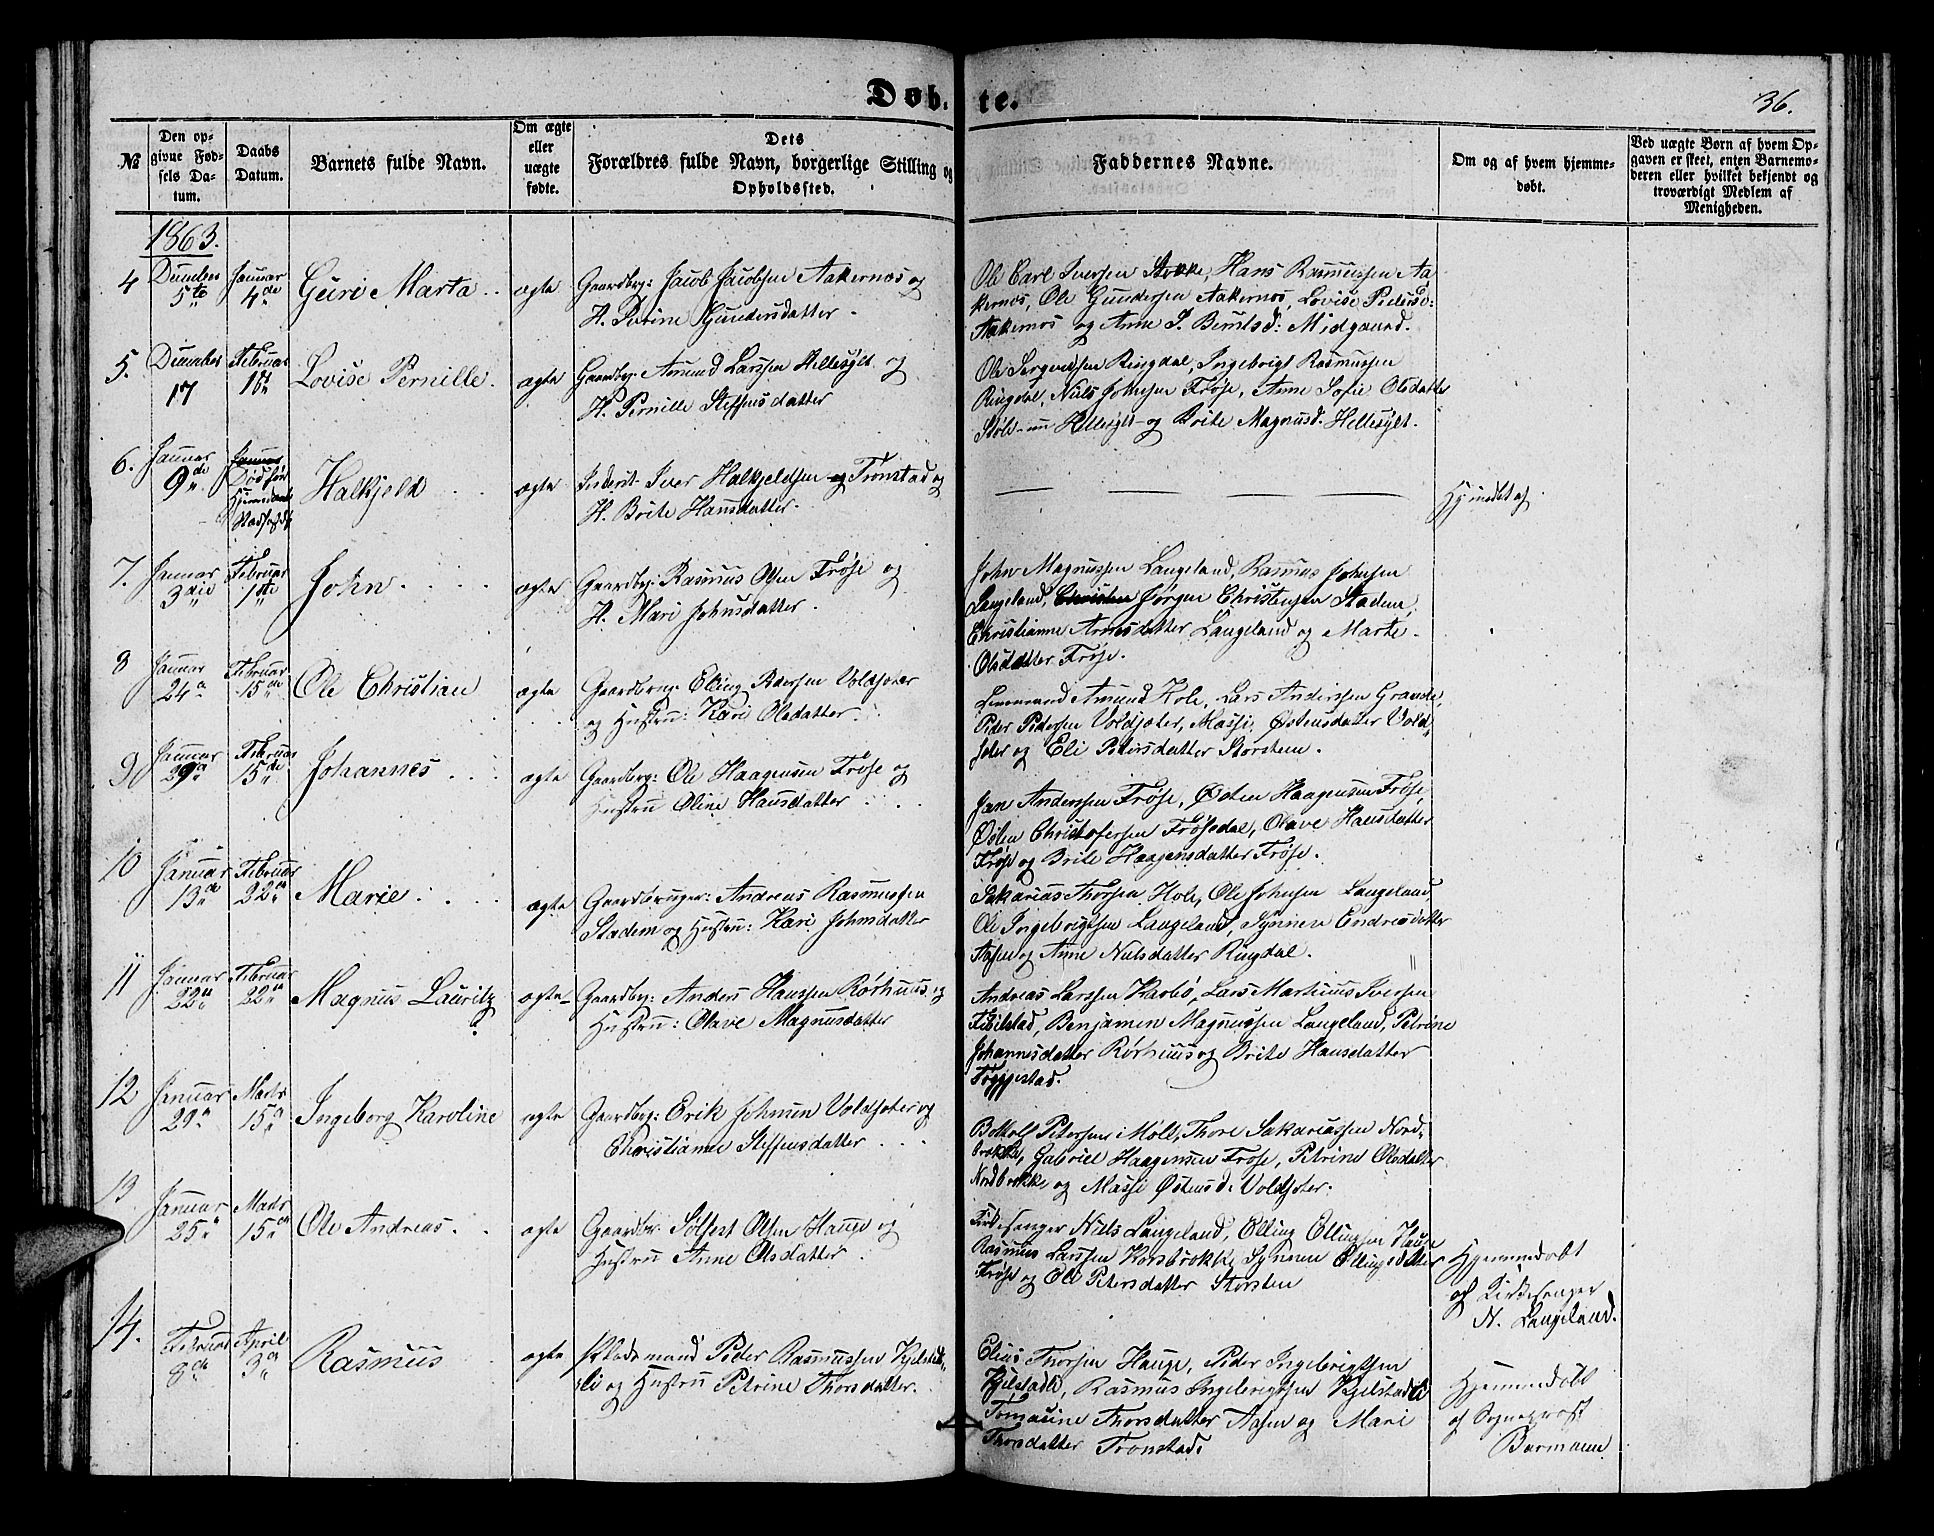 Døb-
te.
36.
№
Den op-
givne Fød-
sels Da-
tum.
Daabs
Datum.
Barnets fulde Navn.
Om ægte
eller
uægte
fødte.
Dets
Forældres fulde Navn, borgerlige Stilling og
Opholdssted.
Faddernes Navne.
Om og af hvem hjemme-
døbt.
Ved uægte Børn af hvem Op-
gaven er skeet, enten Barnemo-
deren eller hvilket bekjendt og
troværdigt Medlem af
Menigheden.
1863.
4
December
5te
Januar
4de
Guri Marta
ægte
Gaardbr: Jacob Jacobsen Aakernæs og
H. Perine Gundersdatter
Ole Carl Iversen Stokke, Hans Rasmussen Aa-
kernes, Ole Gundersen Aakernes, Lovise Peders d:
Aakernes og Anne P. Berntsd: Midgaard.
5.
December
17
Februar
1ste
Lovise Pernille
ægte
Gaardbr: Amund Larssen Hellesylt og
H. Pernille Steffensdatter
Ole Ringdal, Ingebrigt Rasmussen
Ringdal, Niels Johnsen Frøse, Anne Sofie Olsdatter
Hellesylt og Brite Magnusd. Hellesylt.
6.
Januar
9de
Januar
Død før
Halkjeld
ægte
Iver Halkjeldsen og Tronstad og
H. Brite Hansdatter
Hjemdøbt af
7.
Januar
3die
Februar
1ste
John
ægte
Gaardbr: Rasmus Olsen Frøse og
H. Mari Johnsdatter
John Magnussen Langeland, Rasmus Johnsen
Langeland, Christen Jørgen Christensen Stadem,
Christianne Arnesdatter Langeland og Marte
Olsdatter Frøse.
8
Januar
24de
Februar
15de
Ole Christian
ægte
Gaardbrug: Elling Pedersen Voldsæter
og Hustru: Kari Olsdatter
Lensmand Amund Hole, Lars Anderssen Grande,
Peder Pedersen Voldsæter, Massi Østensdatter Vold-
sæter og Eli Petersdatter Storsten.
9
Januar
29de
Februar
15de
Johannes
ægte
Gaardbr: Ole Haagensen Frøse og
Hustru Oline Hansdatter
Jan Anderssen Frøse, Østen Haagensen Frøse,
Østen Christofersen Frøsedal, Olave Hansdatter
Frøse og Brite Haagensdatter Frøse.
10
Januar
13de
Februar
22de
Marie
ægte
Gaardbruger: Andreas Rasmussen
Stadem og Hustru: Kari Johnsdatter
Sakarias Thorsen Hole, Ole Johnsen Langeland,
Ole Ingebrigtsen Langeland, Synneve Endresdatter
Aasen og Anne Nielsdatter Ringdal.
11
Januar
22de
Februar
22de
Magnus Lauritz
ægte
Gaardbr: Anders Hanssen Rørhuus og
Hustru: Olave Magnusdatter
Andreas Larssen Karbø, Lars Martinus Iversen
Fibelstad, Benjamen Magnussen Langeland, Petrine
Johannesdatter Rørhuus og Brite Hansdatter
Tryggestad.
12
Januar
29de
Marts
15de
Ingeborg Karoline
ægte
Gaardbr: Erik Johnsen Voldsæter og
Christianne Steffensdatter
Bottolf Petersen Moll, Thore Sakariassen Nord-
brokke, Gabriel Haagensen Frøse, Petrine Olsdatter
Nordbrokke og Massi Østensd: Voldsæter.
13
Januar
25de
Marts
15de
Ole Andreas
ægte
Gaardbr: Sølfest Olsen Hauge og
Hustru Anne Olsdatter
Kirkesanger Niels Langeland, Elling Ellingsen Hauge
Rasmus Larssen Korsbrokke, Synneve Ellingsdatter
Frøse og Eli Petersdatter Storsten
Hjemmedøbt
af Kirkesanger
N. Langeland.
14.
Februar
8de
April
3de
Rasmus
ægte
Pladsmand Peder Rasmussen Kjelstad-
li og Hustru Petrine Thorsdatter.
Elias Thorsen Hauge, Peder Ingebrigtsen
Kjelstadli, Rasmus Ingebrigtsen Kjelstadli
Tomasine Thorsdatter Aasen og Mari
Thorsdatter Tronstad.
Hjemmedøbt
af Sogneprest
Barmann